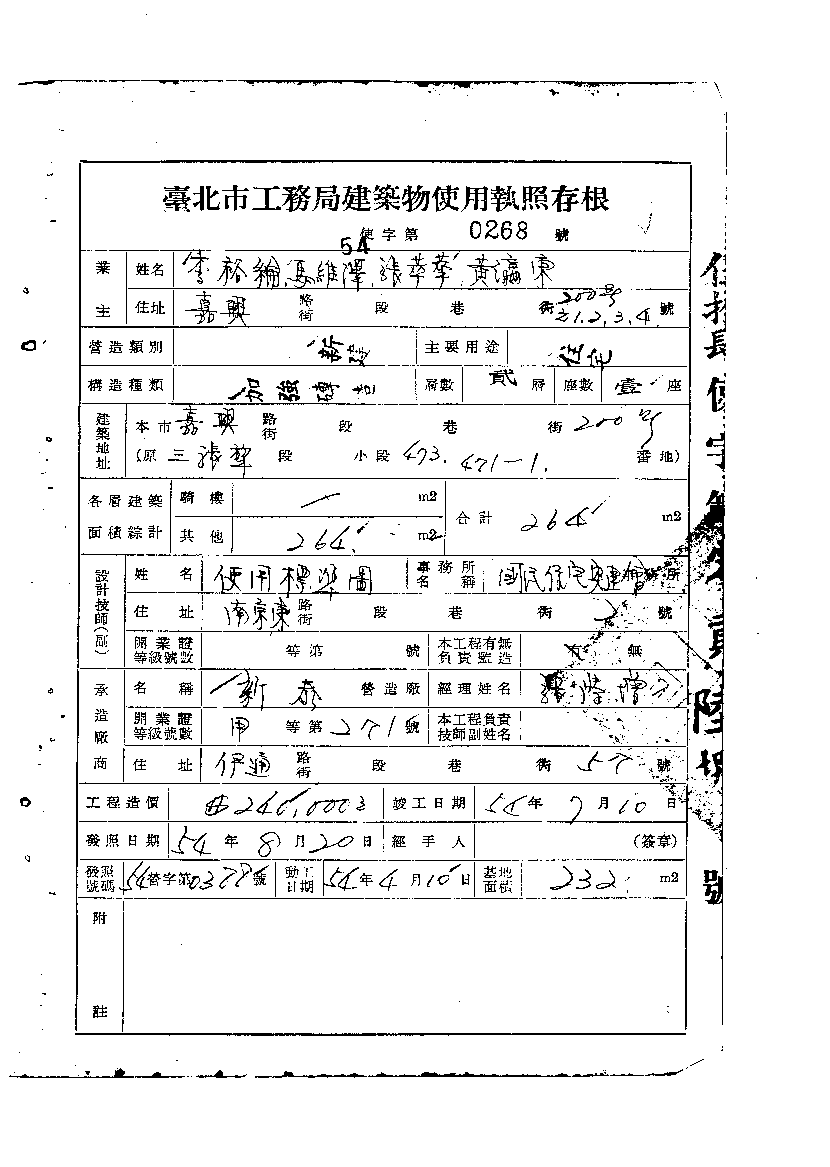 臺北市工務局建築物使用執照存根
54 使字第 0268 號
業主 姓名 李裕綸、馮維澤、張莘華、黃瀛東
住址 嘉興 路街 段 巷 衖 200號之1.2.3.4. 號
營造類別 新建 主要用途 住宅
構造種類 加強磚造 層數 貳 層 座數 壹 座
建築地址 本市 嘉興 路街 段 巷 衖 200號
(原 三張犂 段 小段 473. 471-1. 番地)
各層建築面積綜計 騎樓 一 m2 合計 264 m2
其他 264. m2
設計技師(副) 姓名 使用標準圖 事務所名稱 國民住宅興建
住址 南京東 路街 段 巷 衖 2 號
開業證等級號數 等第 號 本工程有無負責監造 有 無
承造廠商 名稱 新泰 營造廠 經理姓名
開業證等級號數 甲 等第 271 號 本工程負責技師副姓名
住址 伊通 路街 段 巷 衖 57 號
工程造價 246,000 竣工日期 54年 7月10日
發照日期 54年 8月20日 經手人 (簽章)
發照號碼 54營字第 0378 號 動工日期 54年4月15日 基地面積 232. m2
附註
使字 陸 號